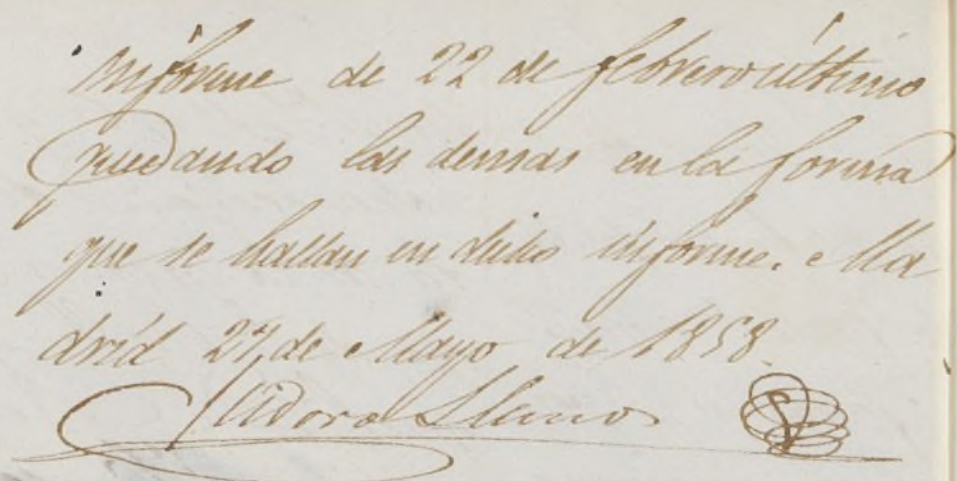 informe de 22 de febrero último
quedando las demas en la forma
que se hallan en dicho informe. Ma
drid 27, de Mayo de 1858.
Isidoro Llanos